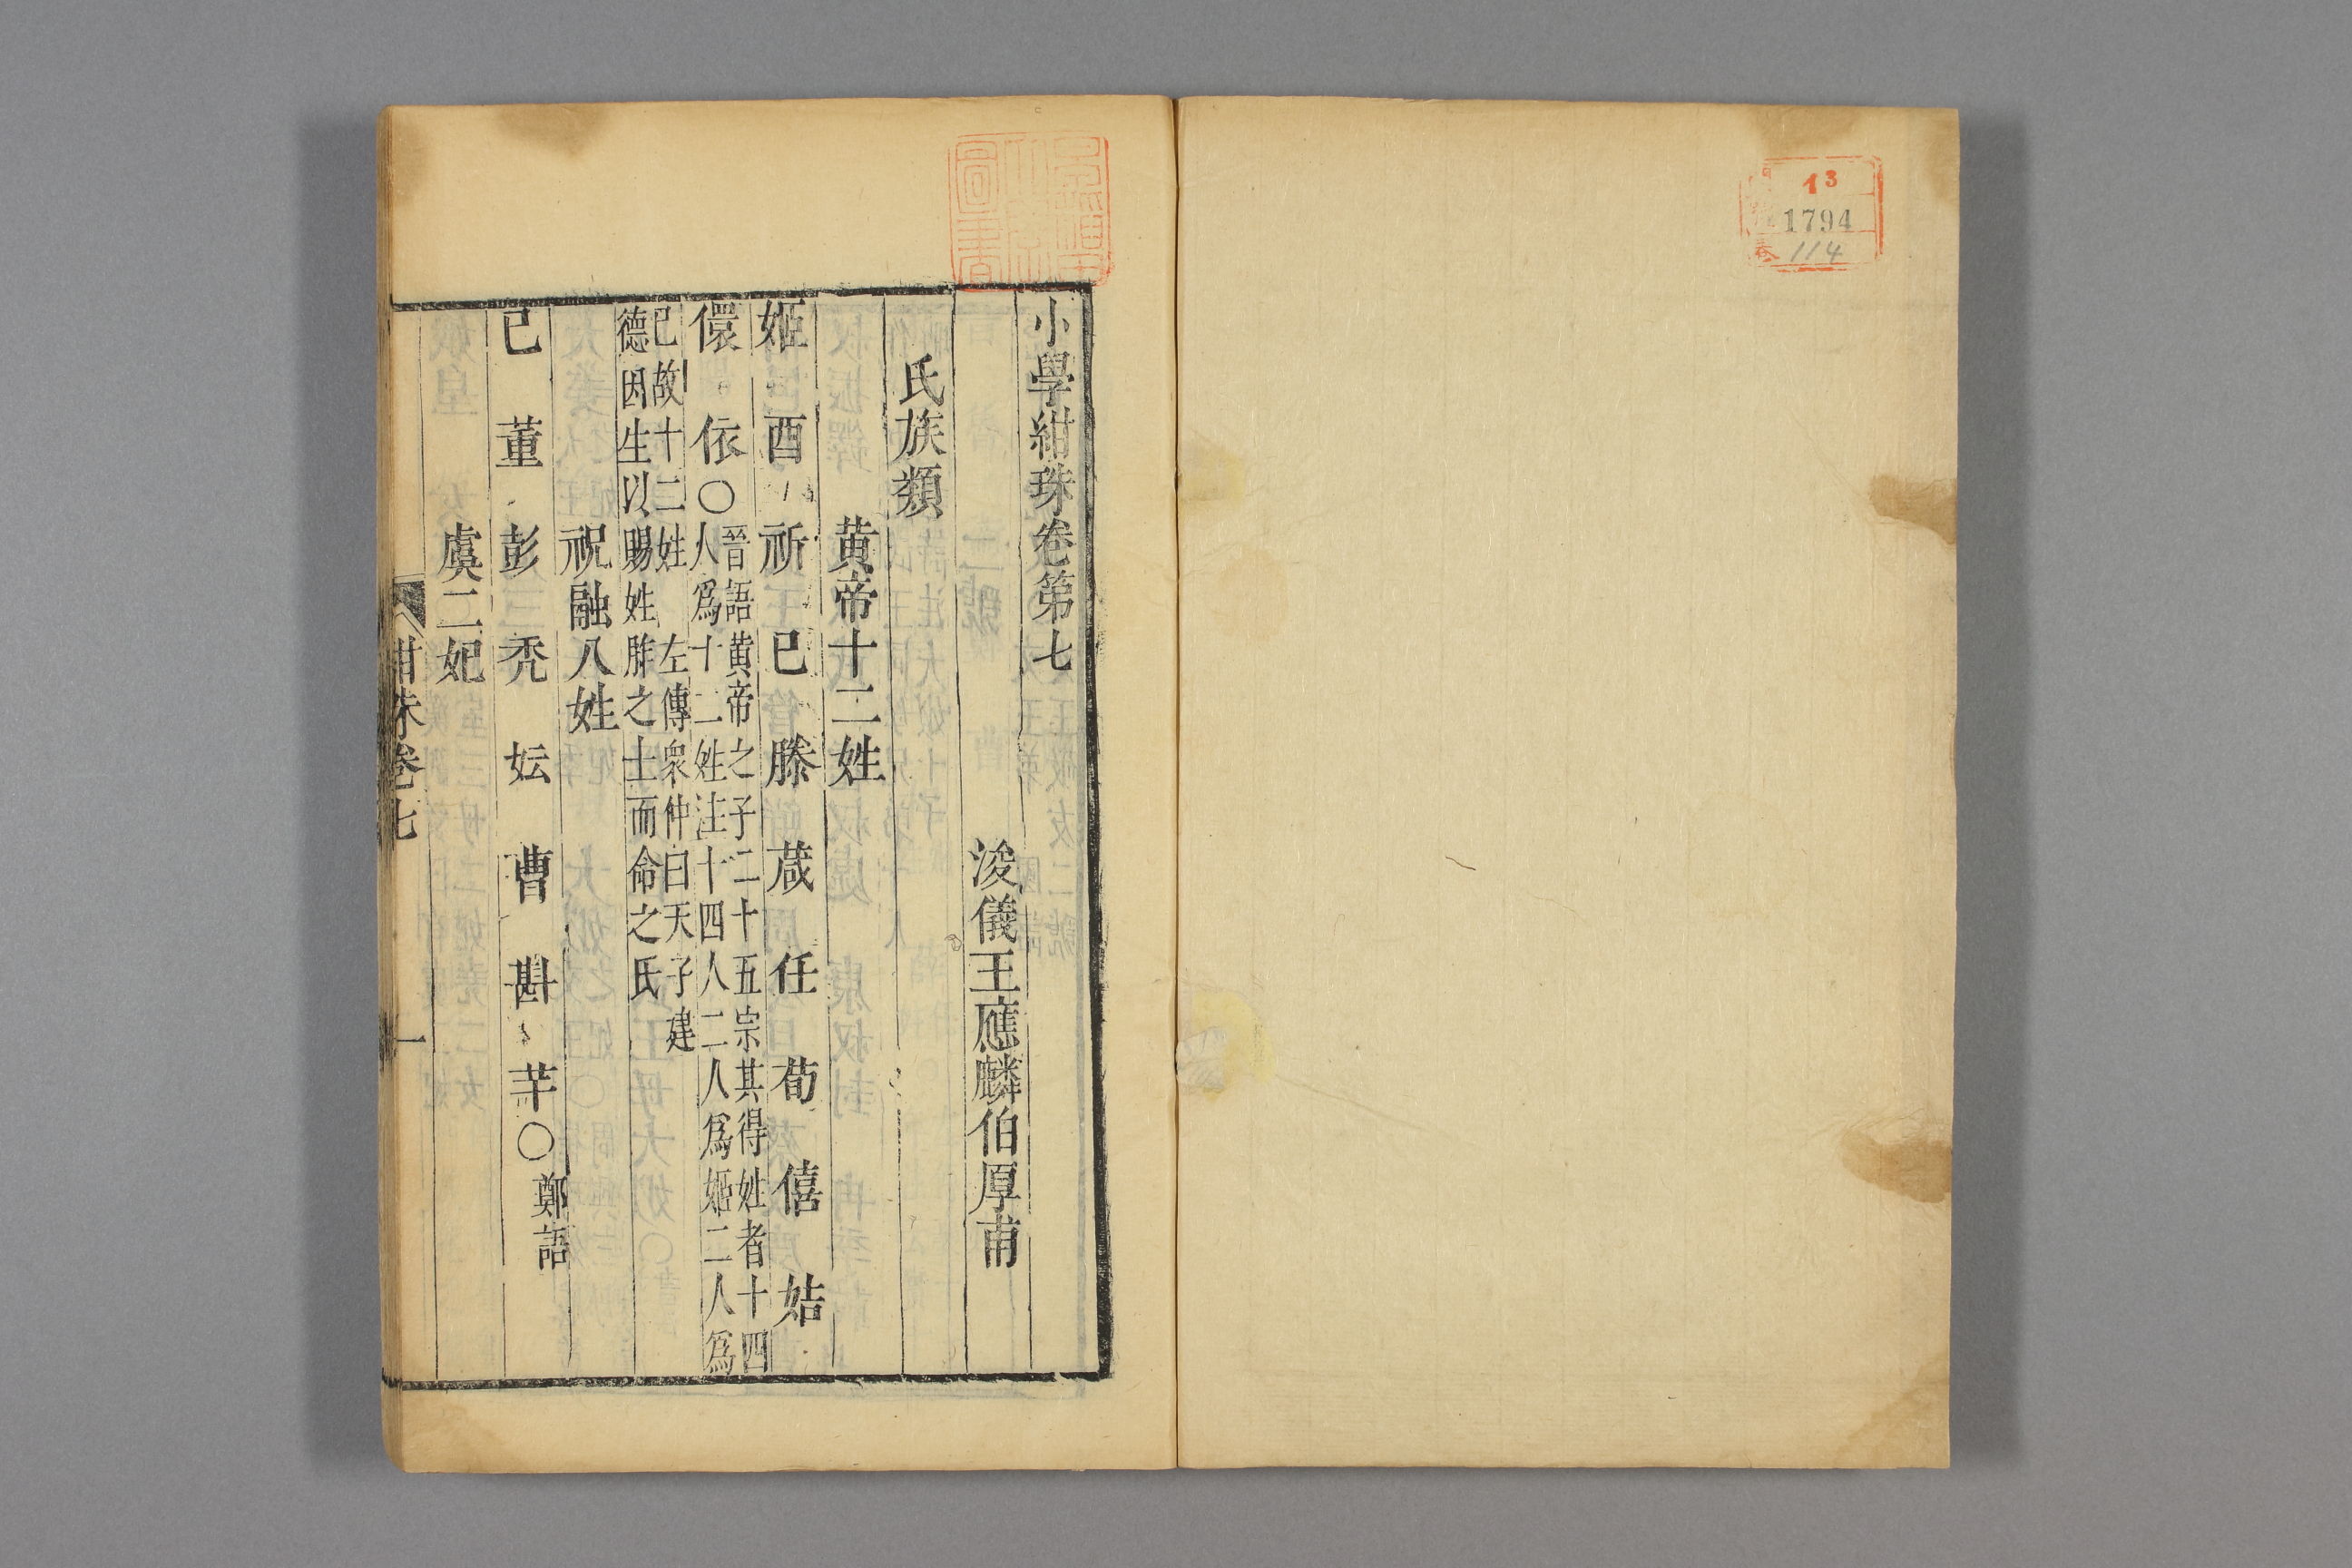 小學紺珠卷第七
浚儀王應麟伯厚甫
氏族類
黃帝十二姓
姬 酉 祈 已 滕 葴 任 荀 僖 姞
儇 依○晉語黃帝之子二十五宗其得姓者十四
人爲十二姓注十四人二人爲姬二人爲
已故十二姓 左傳衆仲曰天子建
德因生以賜姓胙之土而命之氏
祝融八姓
已 董 彭 禿 妘 曹 斟 芊○鄭語
虞二妃
紺珠卷七 一
13
1794
114
圖書